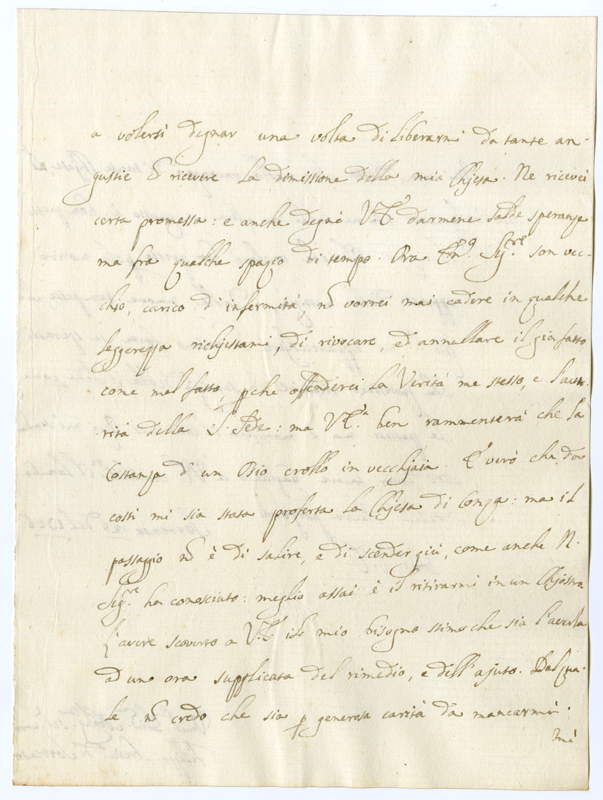 a volersi degnar una volta di liberarmi da tante an-
gustie e ricevere la dimissione della mia Chjesa. Ne ricevei
certa promessa: e anche degnò V. E. darmene salde speranze
ma fra qualche spazio di tempo. Ora Em.º Sig.re son vec-
chio, carico d'infermità, nõ vorrei mai cadere in qualche
leggerezza richjestami, di rivocare, ed annullare il già fatto
come mal fatto, pche offenderei la Verità me stesso, e l'auto-
rità della S. Sede: ma V. E.ª ben rammenterà che la
Costanza d'un Osio crollò in vecchjaja. E' vero che da
costì mi sia stata proferta la Chjesa di Conza: ma il
passaggio nõ è di salire, e di scender giù, come anche N.
Sig.re ha conosciuto: meglio assai è il ritirarmi in un Chjostro
L'avere scoverto a V. E. il mio bisogno stimo che sia l'averla
ad un ora supplicata del rimedio, e dell'ajuto. Dal qua-
le nõ credo che sia p generosa carità da mancarmi.
Mi